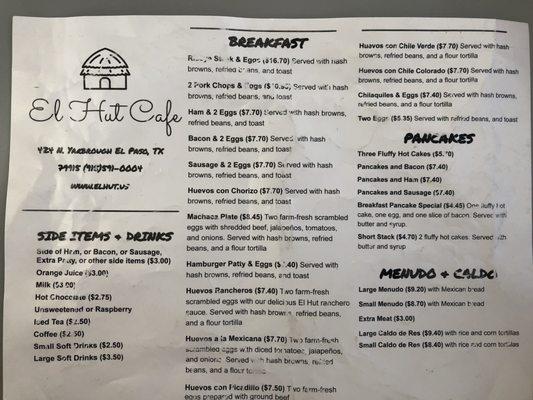 El Hut Cafe
424 N. Yarbrough El Paso, TX
79915 (915)591-0004
www.elhut.us
SIDE ITEMS & DRINKS
Side of Ham, or Bacon, or Sausage,
Extra Patty, or other side items ($3.00)
Orange Juice ($3.00)
Milk ($3.00)
Hot Chocolate ($2.75)
Unsweetened or Raspberry
Iced Tea ($2.50)
Coffee ($2.50)
Small Soft Drinks ($2.50)
Large Soft Drinks ($3.50)
BREAKFAST
Steak & Eggs ($16.70) Served with hash
browns, refried beans, and toast
2 Pork Chops & Eggs Served with hash
browns, refried beans, and toast
Ham & 2 Eggs ($7.70) Served with hash browns,
refried beans, and toast
Bacon & 2 Eggs ($7.70) Served with hash
browns, refried beans, and toast
Sausage & 2 Eggs ($7.70) Served with hash
browns, refried beans, and toast
Huevos con Chorizo ($7.70) Served with hash
browns, refried beans, and toast
Machaca Plate ($8.45) Two farm-fresh scrambled
eggs with shredded beef, jalapeños, tomatoes,
and onions. Served with hash browns, refried
beans, and a flour tortilla
Hamburger Patty & Eggs Served with
hash browns, refried beans, and toast
Huevos Rancheros ($7.40) Two farm-fresh
scrambled eggs with our delicious El Hut ranchero
sauce. Served with hash browns, refried beans,
and a flour tortilla
Huevos a la Mexicana ($7.70) Two farm-fresh
scrambled eggs with diced tomatoes, jalapeños,
and onions. Served with hash browns, refried
beans, and a flour tortilla
Huevos con Picadillo ($7.50) Two farm-fresh
eggs prepared with ground beef
Huavos con Chile Verde ($7.70) Served with hash
browns, refried beans, and a flour tortilla
Huevos con Chile Colorado ($7.70) Served with
hash browns, refried beans, and a flour tortilla
Chilaquiles & Eggs ($7.40) Served with hash browns,
refried beans, and a flour tortilla
Two Eggs ($5.35) Served with refried beans, and toast
PANCAKES
Three Fluffy Hot Cakes
Pancakes and Bacon ($7.40)
Pancakes and Ham ($7.40)
Pancakes and Sausage ($7.40)
Breakfast Pancake Special ($4.45) One fluffy hot
cake, one egg, and one slice of bacon. Served with
butter and syrup.
Short Stack ($4.70) 2 fluffy hot cakes. Served with
butter and syrup
MENUDO & CALDO
Large Menudo ($9.20) with Mexican bread
Small Menudo ($8.70) with Mexican bread
Extra Meat ($3.00)
Large Caldo de Res ($9.40) with rice and corn tortillas
Small Caldo de Res ($8.40) with rice and corn tortillas